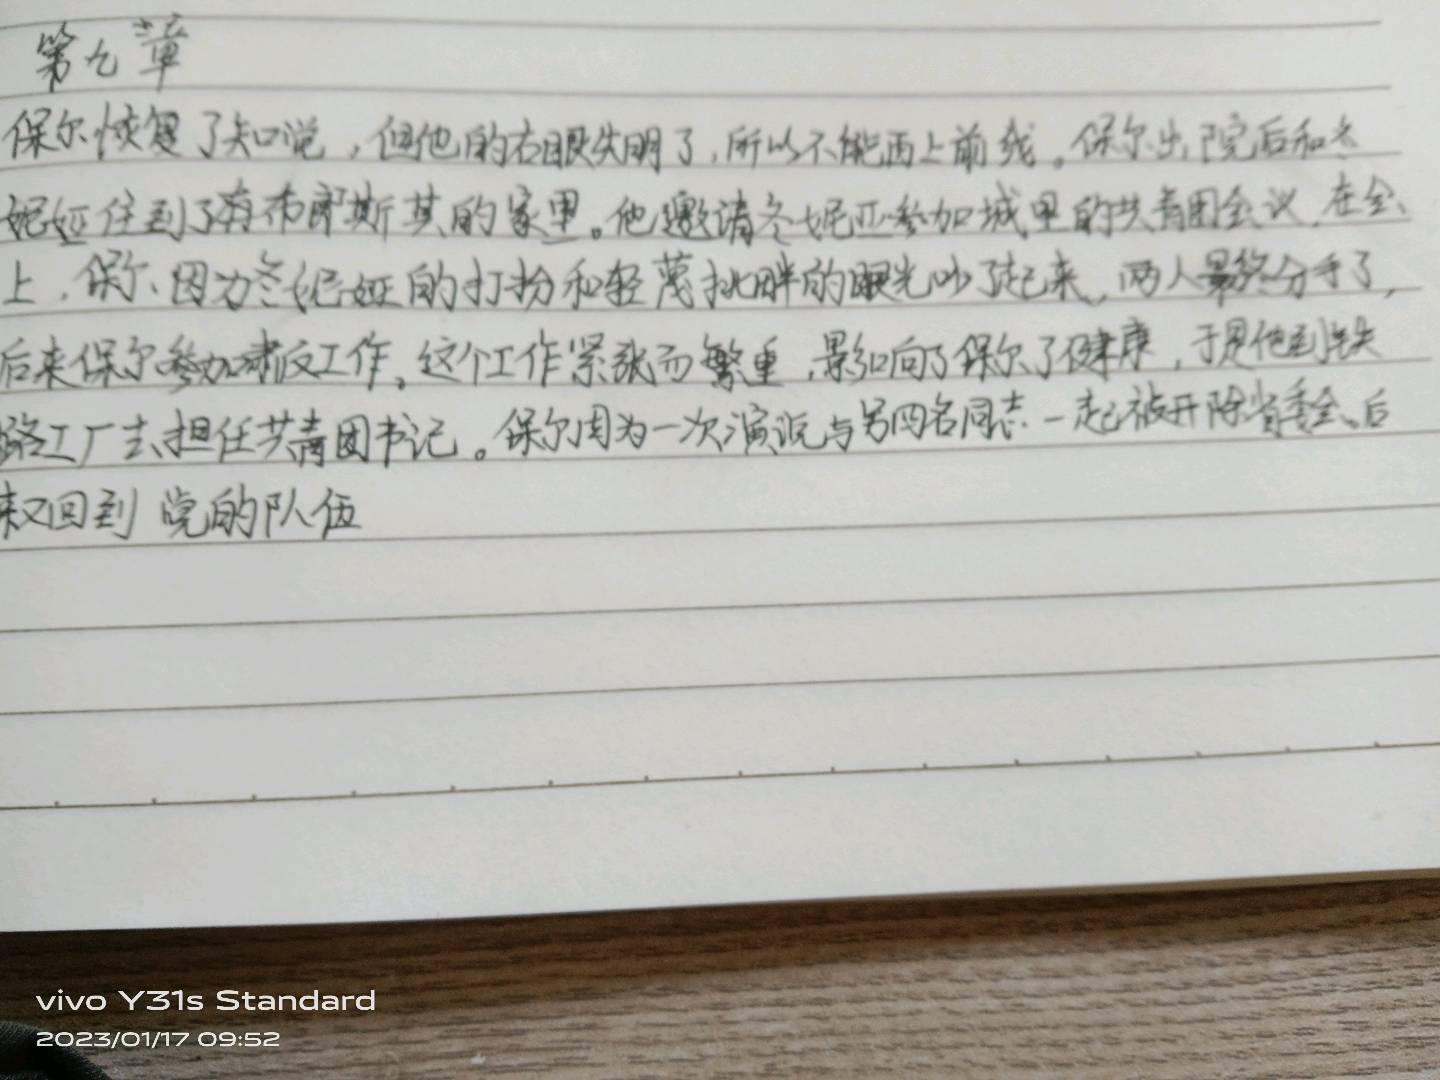 第九章
保尔恢复了知觉，但他的右眼失明了，所以不能再上前线。保尔出院后和冬
妮娅住到了布郎斯基的家里。他邀请冬妮亚参加城里的共青团会议，在会
上，保尔因为冬妮娅的打扮和轻蔑挑衅的眼光吵了起来，两人最终分手了，
后来保尔参加肃反工作，这个工作紧张而繁重，影响了保尔了健康，于是他到铁
路工厂去担任共青团书记。保尔因为一次演说与另四名同志一起被开除省委会。后
来又回到党的队伍
vivo Y31s Standard
2023/01/17 09:52